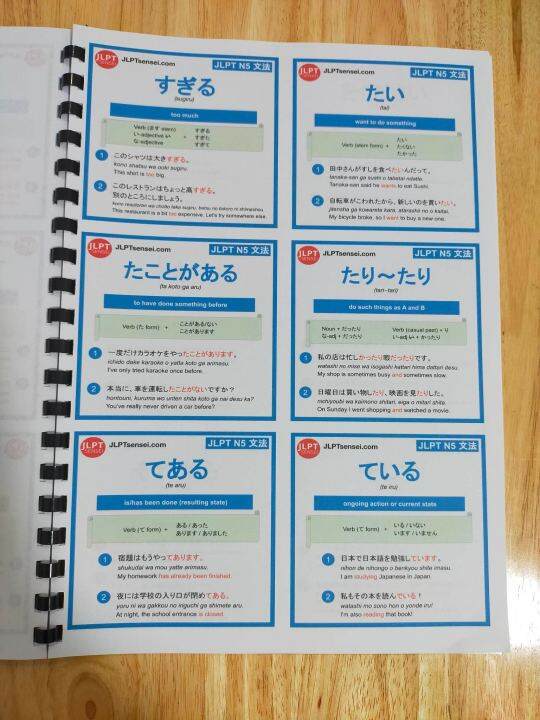 JLPT SENSEI
JLPTsensei.com
JLPT N5 文法
すぎる
(sugiru)
too much
Verb (ます stem)
い-adjective い
な-adjective
+
すぎる
すぎて
すぎて
1 このシャツは大きすぎる。
kono shatsu wa ooki sugiru.
This shirt is too big.
2 このレストランはちょっと高すぎる。
別のところにしましょう。
kono resutoran wa chotto taka sugiru. betsu no tokoro ni shimashou.
This restaurant is a bit too expensive. Let's try somewhere else.
JLPT SENSEI
JLPTsensei.com
JLPT N5 文法
たい
(tai)
want to do something
Verb (stem form) +
たい
たくない
たかった
1 田中さんがすしを食べたいんだって。
tanaka-san ga sushi o tabetai ndatte.
Tanaka-san said he wants to eat Sushi.
2 自転車がこわれたから、新しいのを買いたい。
jitensha ga kowareta kara, atarashii no o kaitai.
My bicycle broke, so I want to buy a new one.
JLPT SENSEI
JLPTsensei.com
JLPT N5 文法
たことがある
(ta koto ga aru)
to have done something before
Verb (た form) +
ことがある/ない
ことがあります
1 一度だけカラオケをやったことがあります。
ichido dake karaoke o yatta koto ga arimasu.
I've only tried karaoke once before.
2 本当に、車を運転したことがないですか?
hontouni, kuruma wo unten shita koto ga nai desu ka?
You've really never driven a car before?
JLPT SENSEI
JLPTsensei.com
JLPT N5 文法
たり〜たり
(tari~tari)
do such things as A and B
Noun + だったり
な-adj + だったり
Verb (casual past) + り
い-adj い + かったり
1 私の店は忙しかったり暇だったりです。
watashi no mise wa isogashi kattari hima dattari desu.
My shop is sometimes busy and sometimes slow.
2 日曜日は買い物したり、映画を見たりした。
nichiyoubi wa kaimono shitari, eiga o mitari shita.
On Sunday I went shopping and watched a movie.
JLPT SENSEI
JLPTsensei.com
JLPT N5 文法
てある
(te aru)
is/has been done (resulting state)
Verb (て form) +
ある / あった
あります / ありました
1 宿題はもうやってあります。
shukudai wa mou yatte arimasu.
My homework has already been finished.
2 夜には学校の入り口が閉めてある。
yoru ni wa gakkou no iriguchi ga shimete aru.
At night, the school entrance is closed.
JLPT SENSEI
JLPTsensei.com
JLPT N5 文法
ている
(te iru)
ongoing action or current state
Verb (て form) +
いる / いない
います / いません
1 日本で日本語を勉強しています。
nihon de nihongo o benkyou shite imasu.
I am studying Japanese in Japan.
2 私もその本を読んでいる!
watashi mo sono hon o yonde iru!
I'm also reading that book!